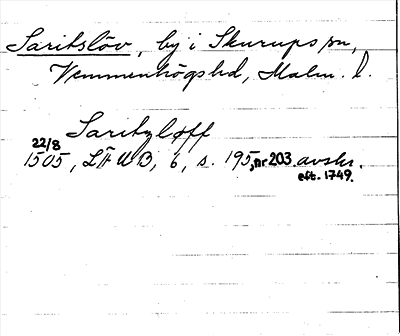 Saritslöv, by i Skurups sn,
Vemmenhögs hd, Malm. l.
Saritzløff
22/8
1505, LÆUB, 6, s. 195, nr 203. avskr.
eft. 1749.